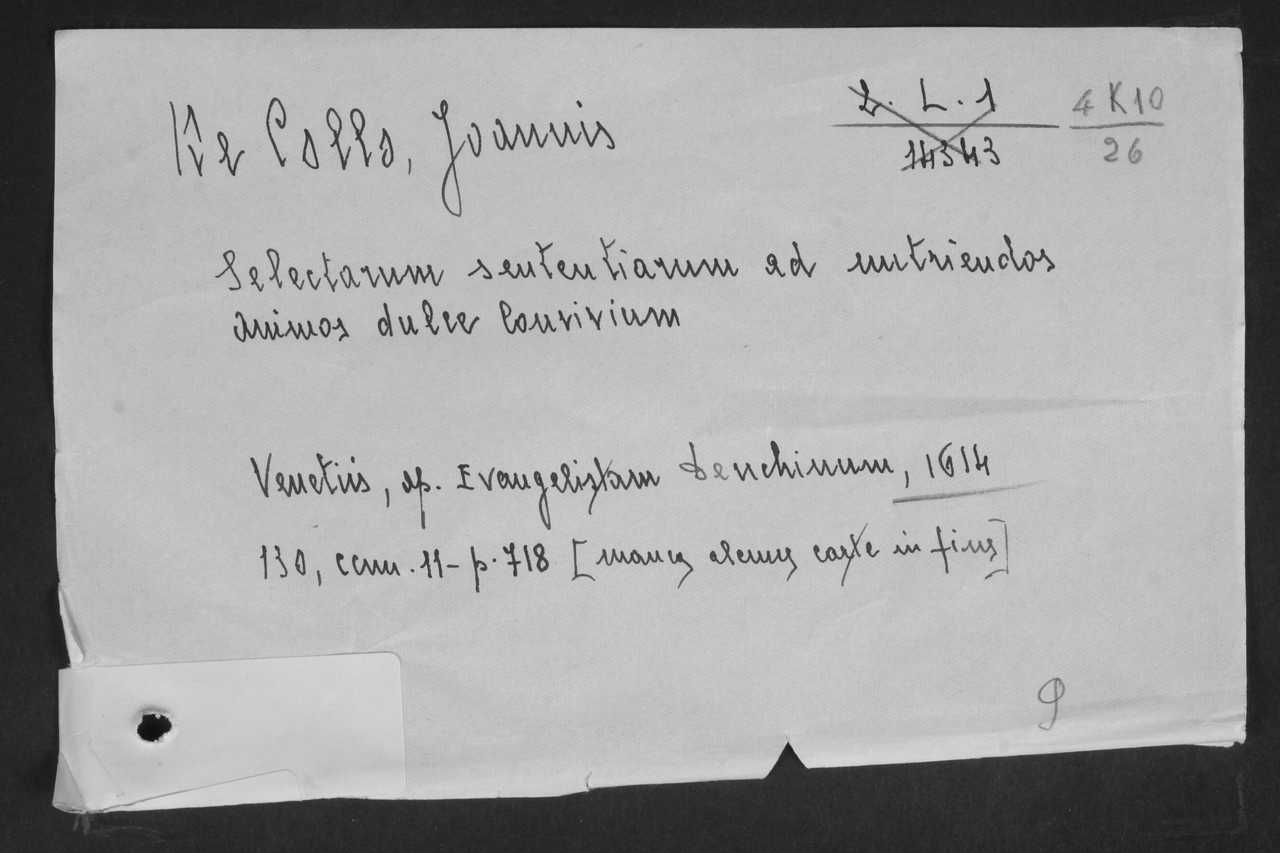 De Collo, Joannis
L. L. 1
14343
4 K10
26
Selectarum sententiarum ad nutriendos
animos dulce Convivium
Venetiis, ap. Evangelistam Deuchinum, 1614
130, ccnn. 11 - p. 718 [alcune carte in fine]